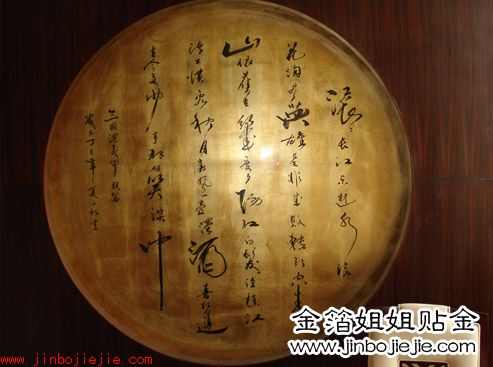 滚滚长江东逝水 浪
花淘尽英雄是非成败转头空青
山依舊在幾度夕阳红白髮渔樵江
渚上惯看秋月春风一壶浊酒喜相逢
古今多少事都付笑谈中
三国演义
金箔姐姐贴金
www.jinbojiejie.com
www.jinbojiejie.com